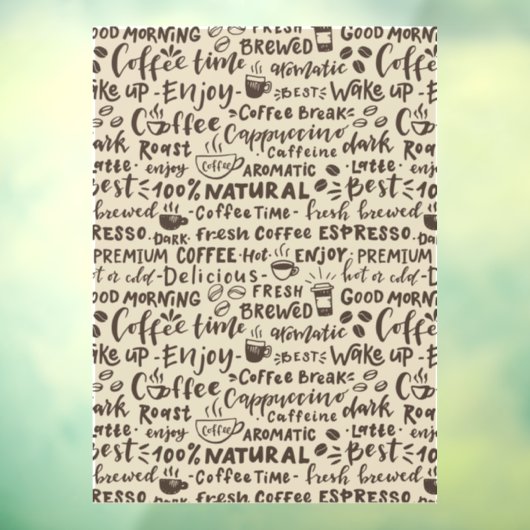 FRESH GOOD MORNING
GOOD MORNING BREWED
Coffee time aromatic Coffee
ake up - Enjoy - BEST Wake up - E
Coffee Coffee Break
Cappuccino
dark Roast Caffeine dark Roast
Latte · enjoy coffee AROMATIC · Latte ·
Best 100% NATURAL Best 100%
brewed - Coffee Time - fresh brewed
PRESSO. DARK fresh Coffee ESPRESSO. DARK
PREMIUM COFFEE · Hot · ENJOY PREMIUM
hot or cold - Delicious - hot or cold - D
FRESH
GOOD MORNING BREWED GOOD MORNING
Coffee time aromatic Coffee
ake up - Enjoy - BEST Wake up - E
Coffee Coffee Break
Cappuccino
dark Roast Caffeine dark Roast
Latte · enjoy coffee AROMATIC · Latte ·
Best 100% NATURAL Best 100%
brewed - Coffee Time - fresh brewed
PRESSO. DARK fresh Coffee ESPRESSO. DARK